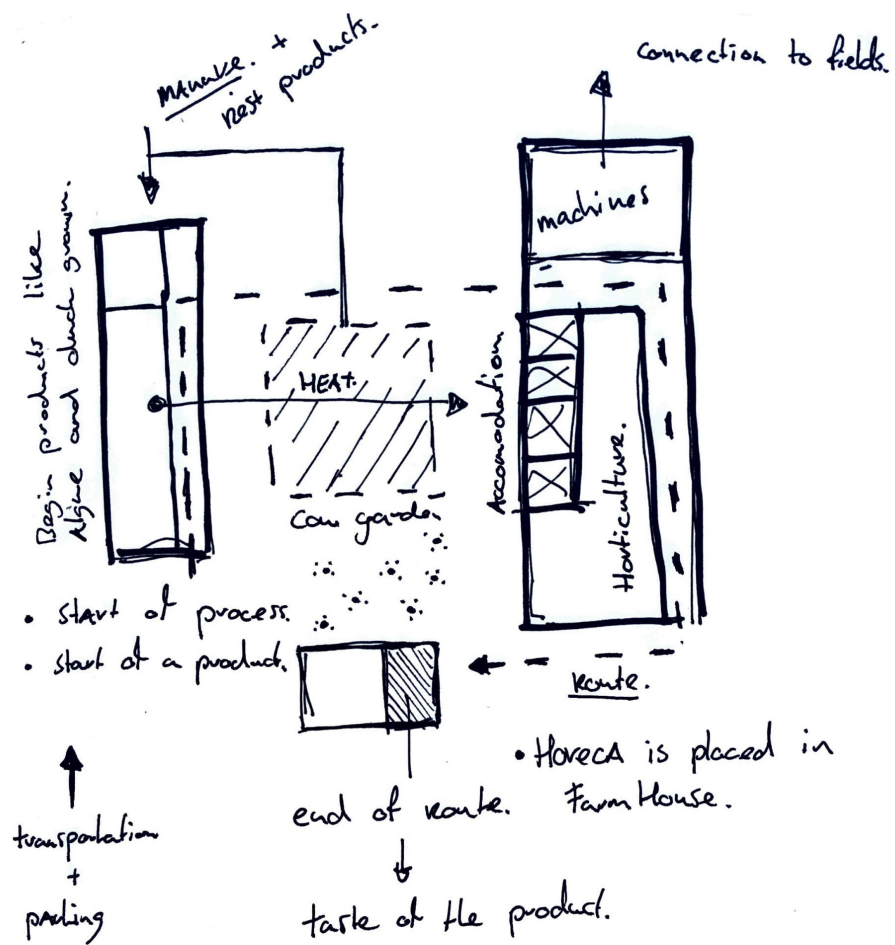 Manure. +
Rest products.
Connection to fields.
machines
Begin products like
Algae and duck grown.
HEAT.
Accomodation
Horticulture.
Cow garden
• start of process.
• start of a product.
Route.
• HorecA is placed in
FarmHouse.
end of route.
transportation
+
parking
taste of the product.